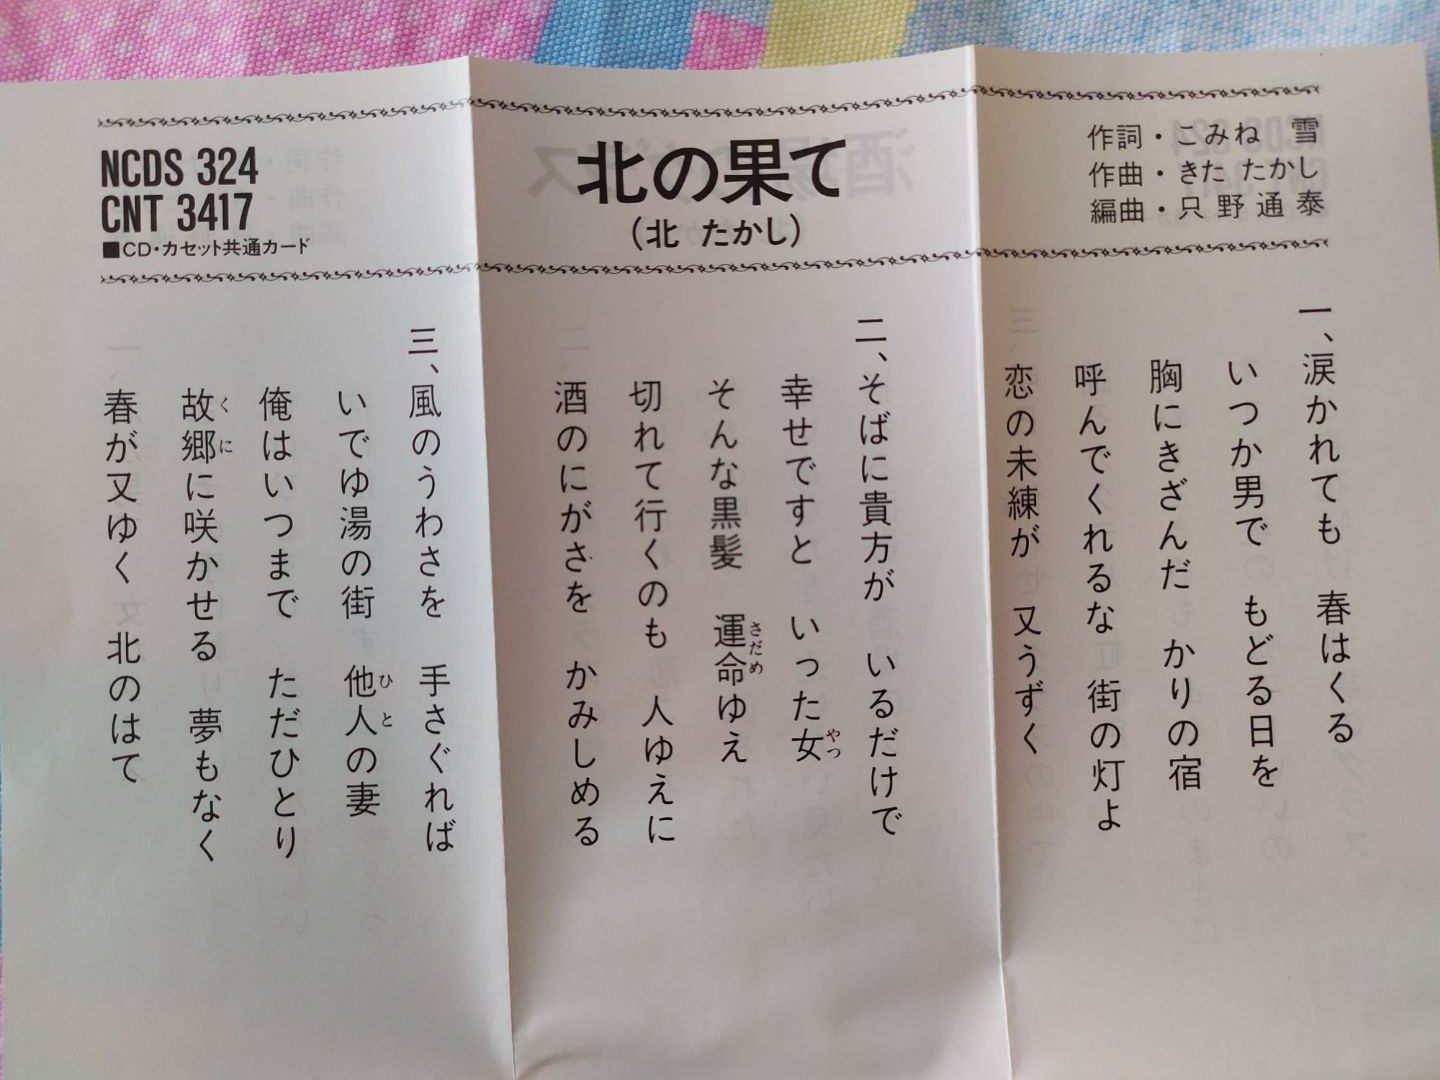 NCDS 324
CNT 3417
■CD・カセット共通カード
北の果て
(北 たかし)
作詞・こみね 雪
作曲・きた たかし
編曲・只野通泰
一、涙かれても 春はくる
いつか男で もどる日を
胸にきざんだ かりの宿
呼んでくれるな 街の灯よ
恋の未練が 又うずく
二、そばに貴方が いるだけで
幸せですと いった女(やつ)
そんな黒髪 運命(さだめ)ゆえ
切れて行くのも 人ゆえに
酒のにがさを かみしめる
三、風のうわさを 手さぐれば
いでゆ湯の街 他人(ひと)の妻
俺はいつまで ただひとり
故郷(くに)に咲かせる 夢もなく
春が又ゆく 北のはて